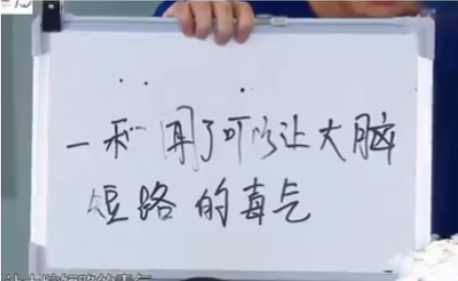 一种用了可以让大脑
短路的毒气